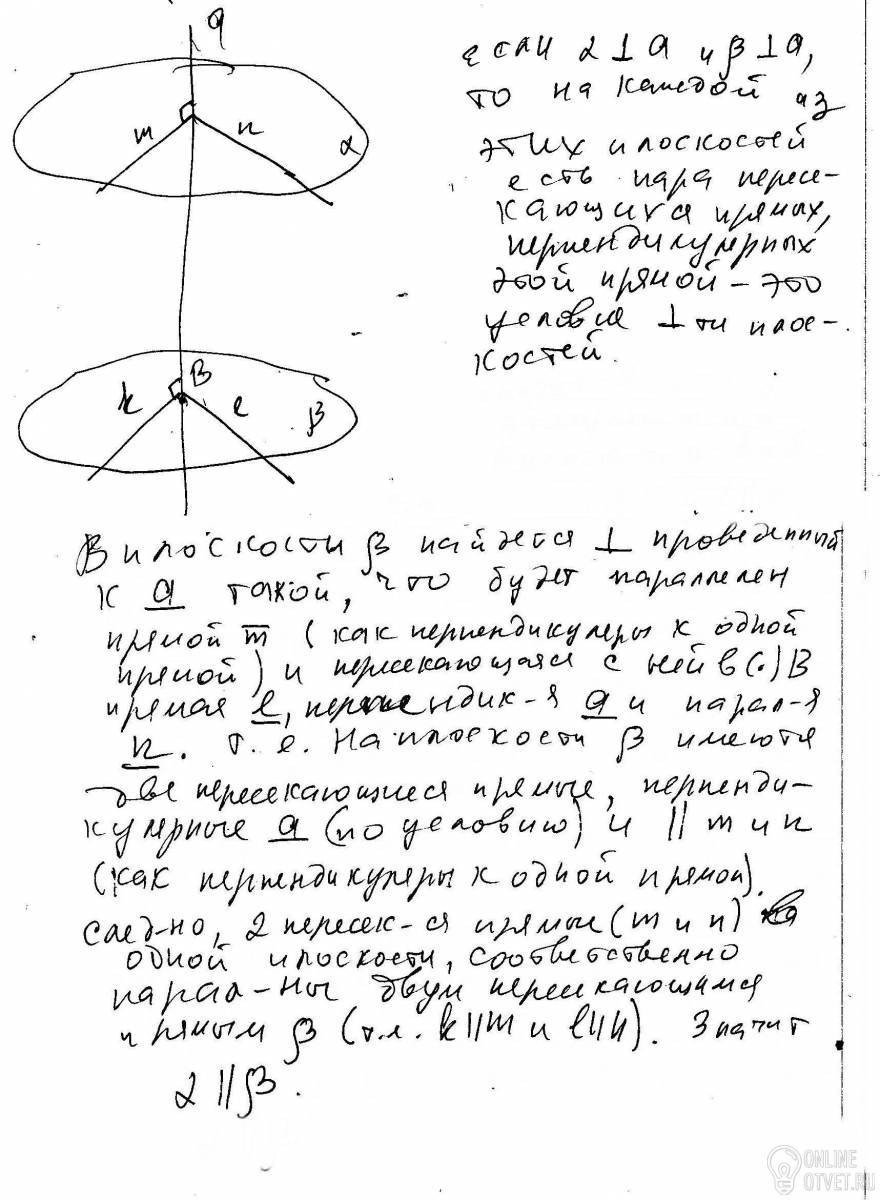 a
m
n
α
если α ⊥ a и β ⊥ a,
то на каждой из
этих плоскостей
есть пара пересе-
кающихся прямых,
перпендикулярных
этой прямой – это
условие ⊥ ти плос-
костей.
B
k
l
β
В плоскости β найдется ⊥ проведенный
к a такой, что будет параллелен
прямой m (как перпендикуляры к одной
прямой) и пересекающаяся с ней в (·) B
прямая l, перпендик-я a и парал-я
n. т. е. На плоскости β имеются
две пересекающиеся прямые, перпенди-
кулярные a (по условию) и || m и n
(как перпендикуляры к одной прямой).
след-но, 2 пересек-ся прямые (m и n)
одной плоскости, соответственно
парал-ны двум пересекающимся
прямым β (т.к. k||m и l||n). Значит
α || β.
ONLINE
OTVET.RU